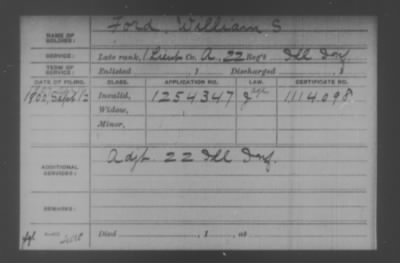 NAME OF SOLDIER: Ford, William S
SERVICE: Late rank, 1 Lieut Co. A, 22 Reg't Ill Inf.
TERM OF SERVICE: Enlisted , 1 Discharged , 1
DATE OF FILING. CLASS. APPLICATION NO. LAW. CERTIFICATE NO.
1800, Sept 12 Invalid, 1254347 1114.098
Widow,
Minor,
ADDITIONAL SERVICES: Adjt. 22 Ill Inf.
REMARKS:
Died , 1 , at